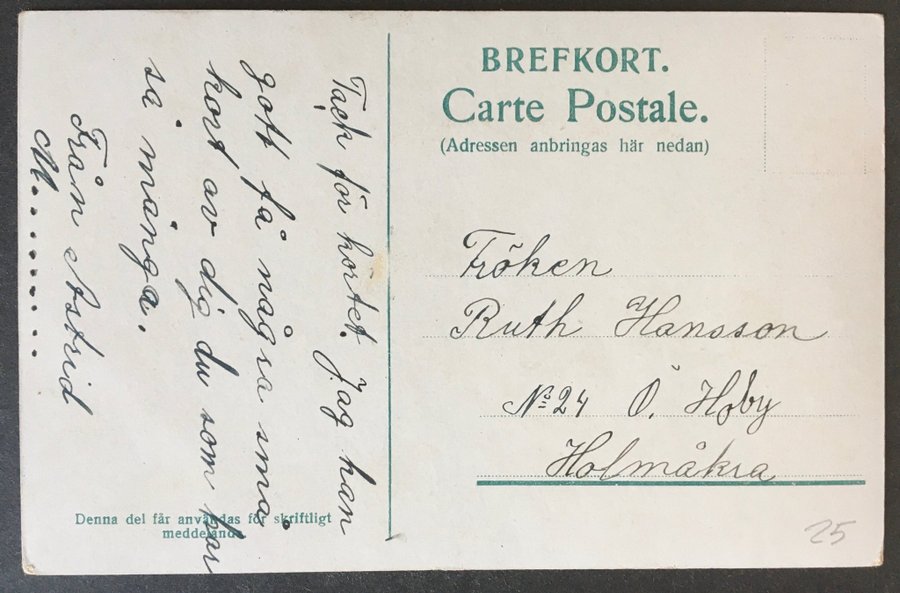 Tack för kortet. Jag kan
gott få någsa små
kort av dig du som har
så många.
Från Astrid
M.......
BREFKORT.
Carte Postale.
(Adressen anbringas här nedan)
Fröken
Ruth Hansson
No 24 Ö. Hoby
Holmåkra
Denna del får användas för skriftligt
meddelande
25